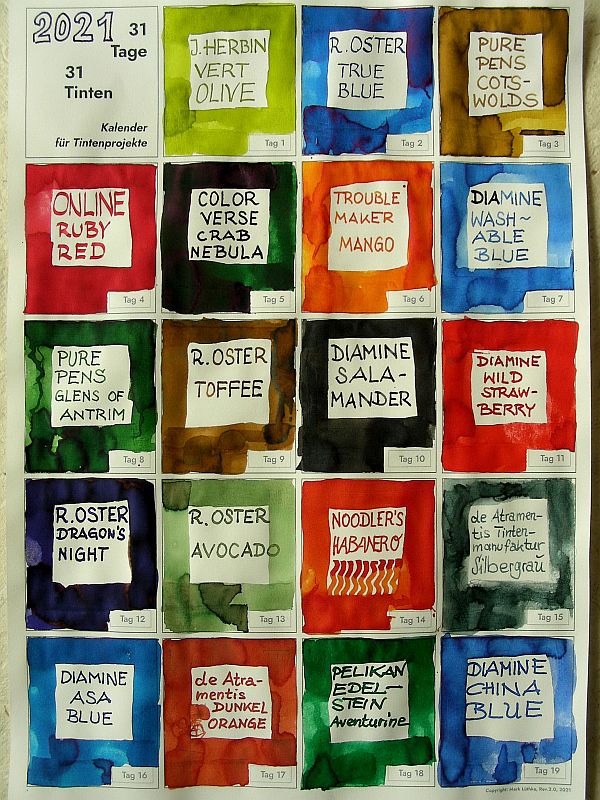 2021 31
Tage
31
Tinten
Kalender
für Tintenprojekte
J. HERBIN
VERT
OLIVE
Tag 1
R. OSTER
TRUE
BLUE
Tag 2
PURE
PENS
COTS-
WOLDS
Tag 3
ONLINE
RUBY
RED
Tag 4
COLOR
VERSE
CRAB
NEBULA
Tag 5
TROUBLE
MAKER
MANGO
Tag 6
DIAMINE
WASH~
ABLE
BLUE
Tag 7
PURE
PENS
GLENS OF
ANTRIM
Tag 8
R. OSTER
TOFFEE
Tag 9
DIAMINE
SALA-
MANDER
Tag 10
DIAMINE
WILD
STRAW-
BERRY
Tag 11
R. OSTER
DRAGON'S
NIGHT
Tag 12
R. OSTER
AVOCADO
Tag 13
NOODLER'S
HABANERO
Tag 14
de Atramen-
tis Tinten-
manufaktur
Silbergrau
Tag 15
DIAMINE
ASA
BLUE
Tag 16
de Atra-
mentis
DUNKEL
ORANGE
Tag 17
PELIKAN
EDEL-
STEIN
Aventurine
Tag 18
DIAMINE
CHINA
BLUE
Tag 19
Copyright: Mark Lüthke, Rev.2.0, 2021